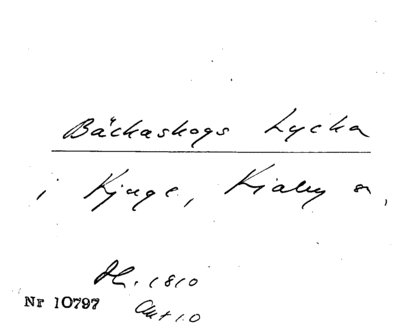 Bäckaskogs Lycka
i Kjuge, Kiaby sn,
1810
Nr 10797